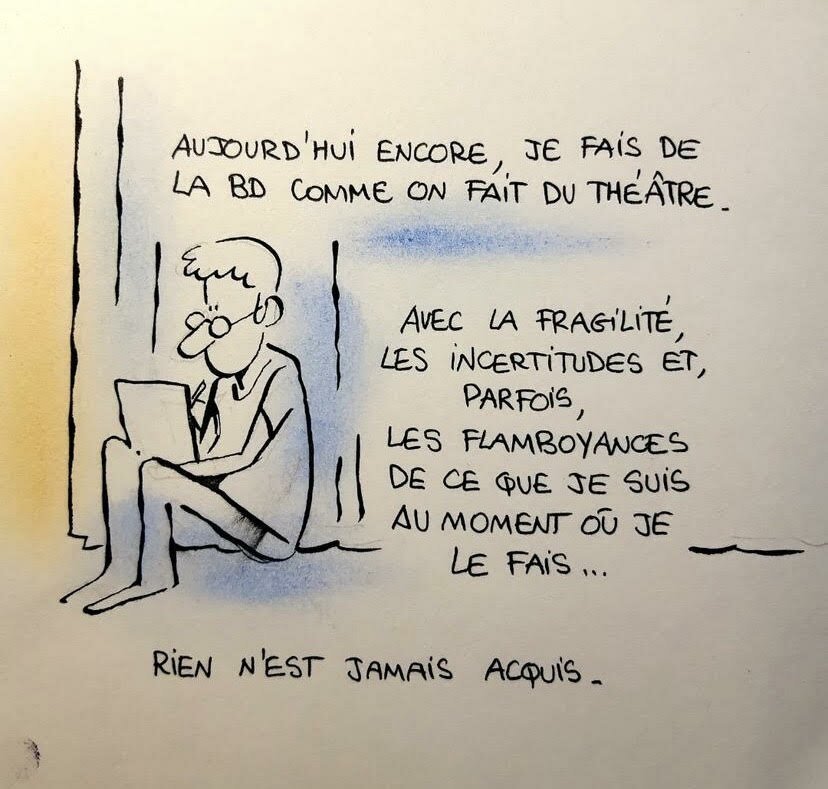 AUJOURD'HUI ENCORE, JE FAIS DE
LA BD COMME ON FAIT DU THÉÂTRE.
AVEC LA FRAGILITÉ,
LES INCERTITUDES ET,
PARFOIS,
LES FLAMBOYANCES
DE CE QUE JE SUIS
AU MOMENT OÙ JE
LE FAIS...
RIEN N'EST JAMAIS ACQUIS.